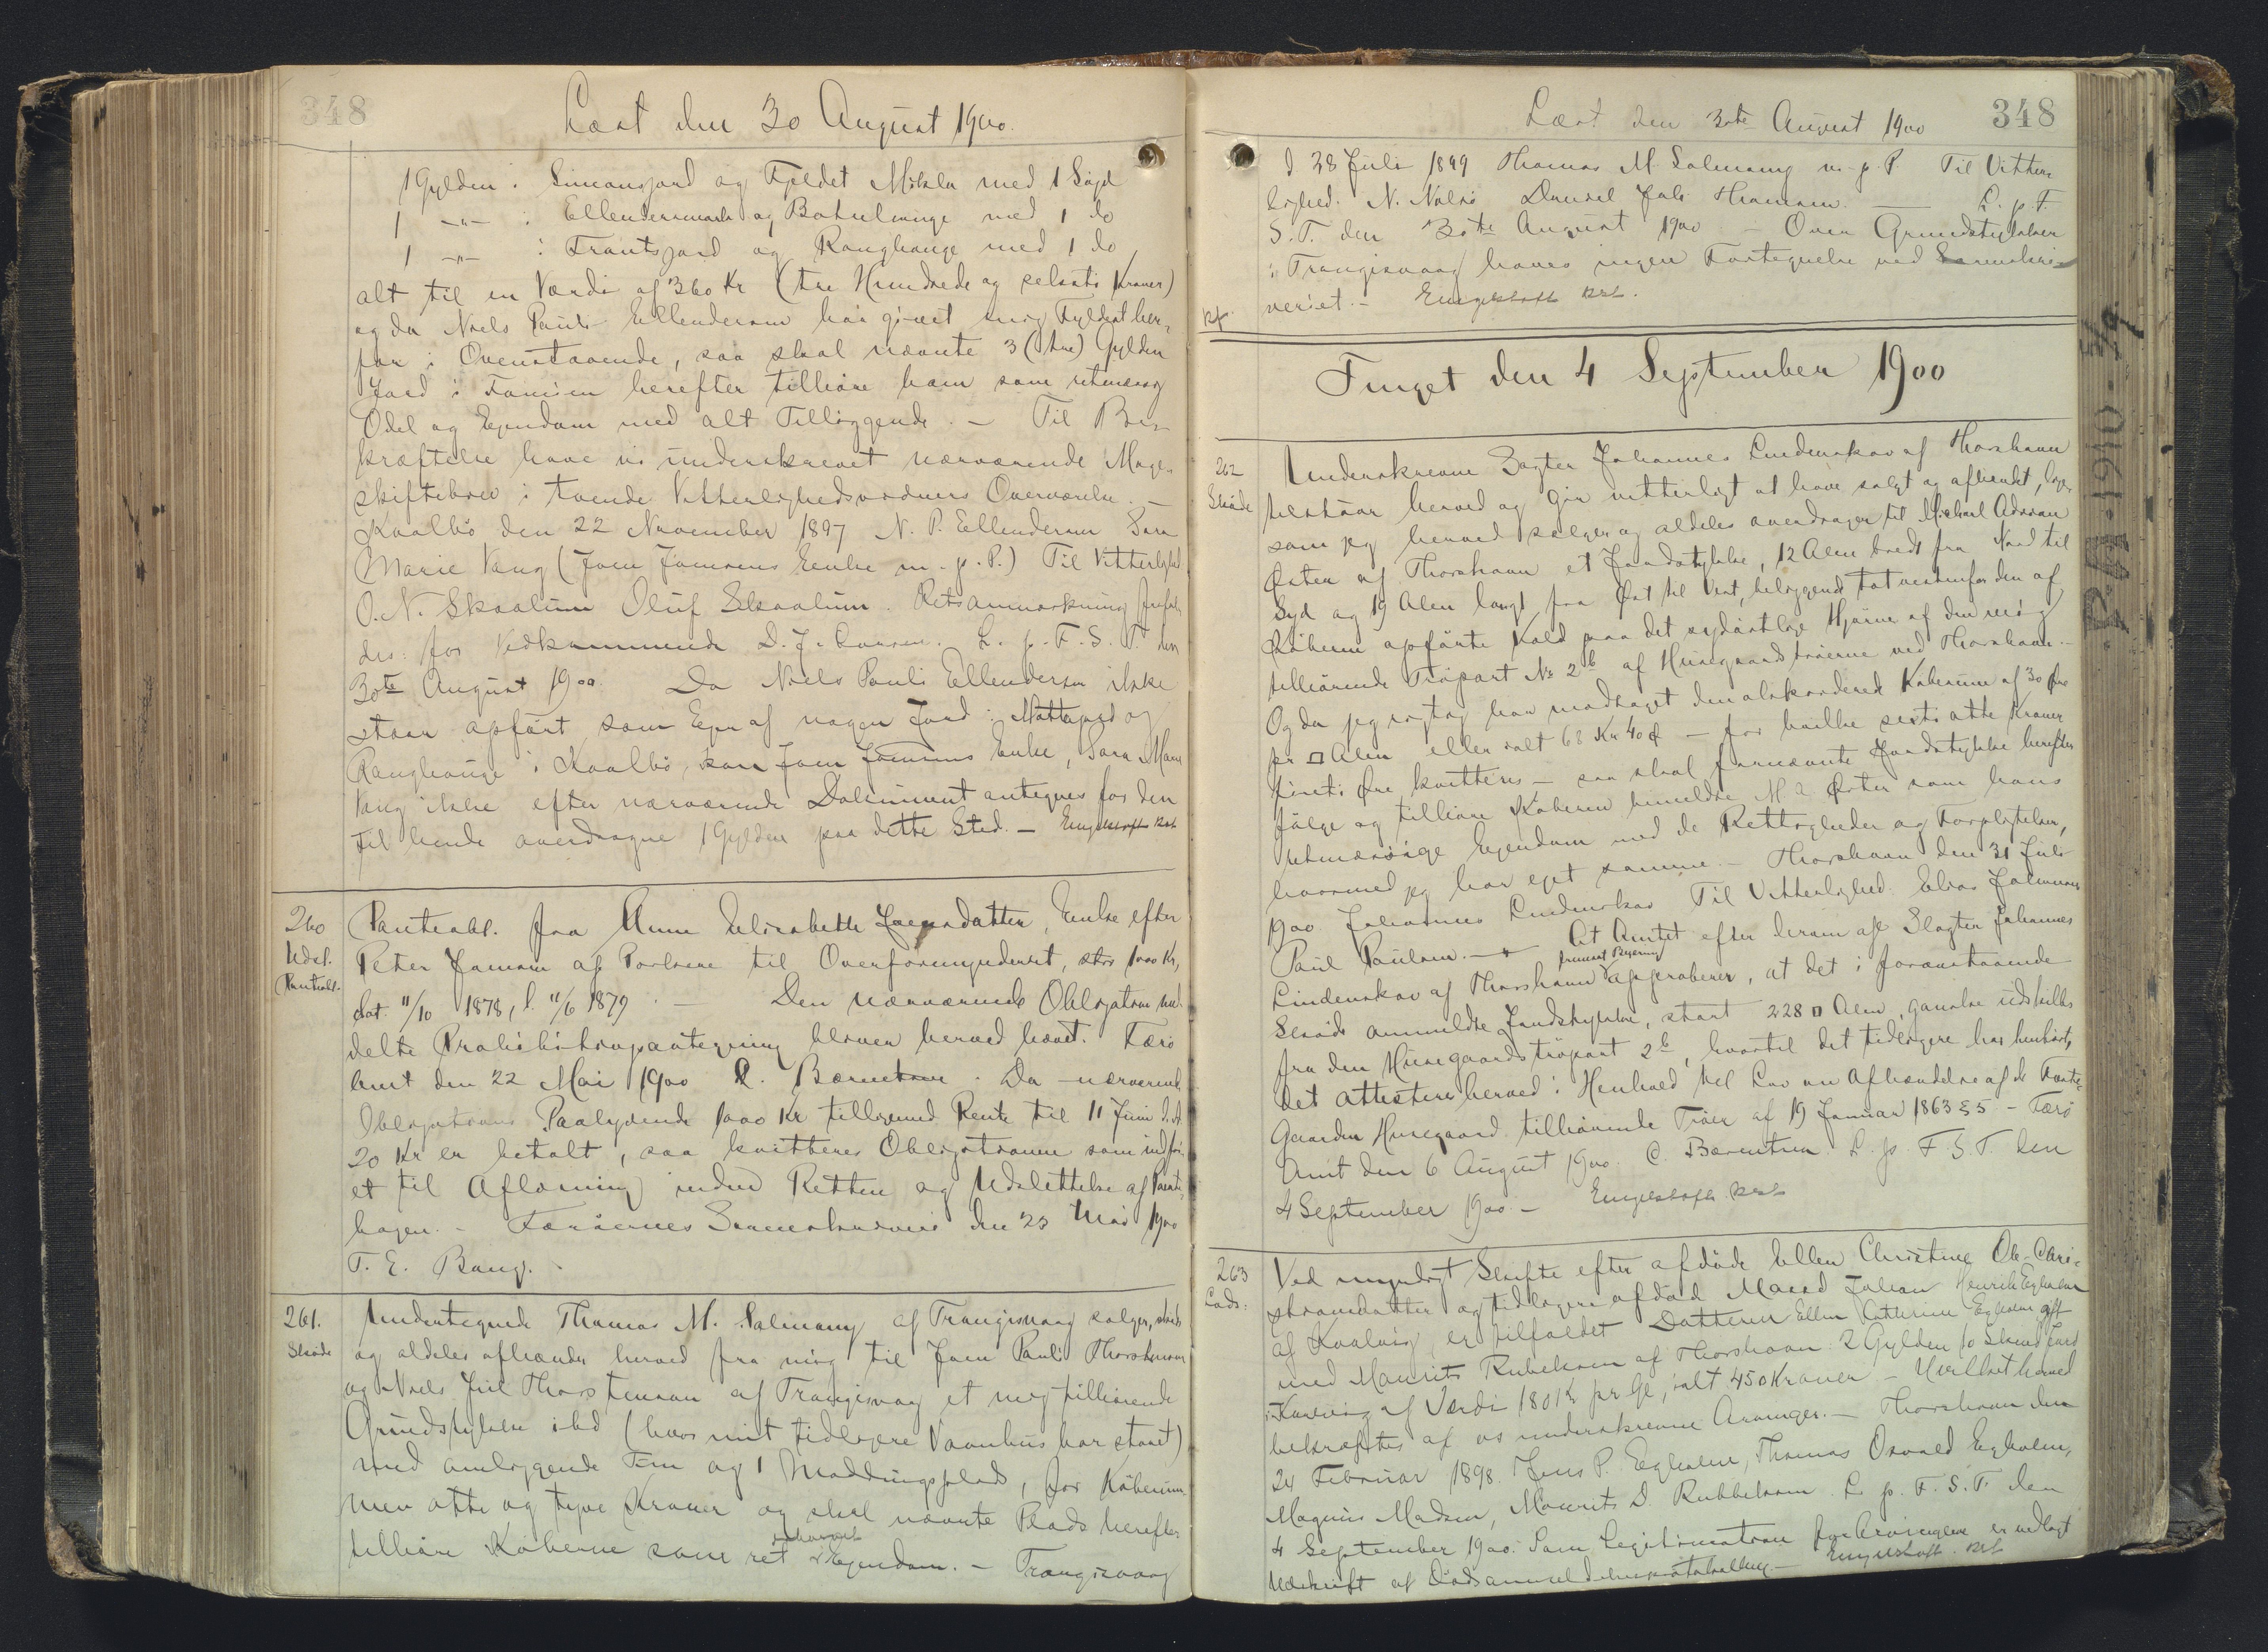 348
Læst den 30 August 1900.
1 Gylden i Simonsjord og Fjeldet Mikla med 1 Søjd
1 -"- i Ellendersmark og Botulvinge med 1 do
1 -"- i Frantsjord og Ranghauge med 1 do
alt til en Værdi af 360 Kr (tre Hundrede og seksti Kroner)
og da Niels Pauli Ellendersen har givet mig Fyldest her-
for i Ovenstaaende, saa skal nævnte 3 (tre) Gylden
Jord i Famien herefter tilhøre ham som retmæssig
Odel og Ejendom med alt Tilliggende. - Til Be-
kræftelse have vi underskrevet nærværende Mage-
skiftebrev i tvende Vitterlighedsvidners Overværelse. -
Kvalbø den 22 November 1897 N. P. Ellendersen Sara
Marie Vang (Joen Joensens Enke m. p. P.) Til Vitterlighed
O. N. Skaalum Oluf Skaalum. Retsanmærkning
for Vedkommende D. J. L. p. F. S. T. den
30te August 1900. Da Niels Pauli Ellendersen ikke
staar opført som Ejer af nogen Jord i og
Ranghauge i Kvalbø, kan Joen Joensens Enke, Sara Marie
Vang ikke efter nærværende Dokument antegnes for den
til hende overdragne 1 Gylden paa dette Sted. - Engelstoft Kst
260
Udsl.
Panteobl.
Panteobl. fra Anne Elisabeth Joensdatter, Enke efter
Peter Joensen af Porkere til Overformynderiet, stor 1000 Kr,
dat. 11/10 1878, l. 11/6 1879. - Den nærværende Obligation med-
delte Prohibitionspaategning bliver herved hævet. Færø
Amt den 22 Mai 1900 C. Bærentsen. Da nærværende
Obligations Paalydende 1000 Kr tilligemed Rente til 11 Juni d. A.
20 Kr er betalt, saa kvitteres Obligationen som indfri-
et til Aflæsning inden Retten og Udslettelse af Pante-
bogen. - Færøernes Sorenskriveri den 23 Mai 1900
T. E. Bang.
261.
Skøde
Undertegnede Thomas M. Salmony af Trangisvaag sælger, skøder
og aldeles afhænder herved fra mig til Joen Pauli Thorstensen
og Niels Juel Thorstensen af Trangisvaag et mig tilhørende
Grundstykke ibd (hvor mit tidligere Vaanhus har staaet)
med omliggende Tun og 1 Møddingsplads, for Købesum-
men otte og tyve Kroner og skal nævnte Plads herefter
tilhøre Køberne som ret Ejendom. - Trangisvaag
Læst den 30te August 1900
348
d 28 Juli 1899 Thomas M. Salmony m. p. P. Til Vitter-
lighed. N. Nolsø Daniel Jak Thomsen. L. p. F.
S. T. den 30te August 1900 - Over Grundstykker
i Trangisvaag haves ingen Fortegnelse ved Sorenskri-
veriet. - Engelstoft Kst.
Tinget den 4 September 1900
262
Skøde
Underskrevne Slagter Johannes Lindenskov af Thorshavn
tilstaar herved og gør vitterligt at have solgt og afhændet, lige-
som jeg herved sælger og aldeles overdrager til Michael Adrian
Øster af Thorshavn et Jordstykke, 12 Alen bredt fra Nord til
Syd og 19 Alen langt fra Øst til Vest, beliggende tæt vestenfor den af
Køberen opførte Kald paa det sydøstlige Hjørne af den mig
tilhørende Trøpart No 2b af Husegaardstrøerne ved Thorshavn. -
Og da jeg rigtig har modtaget den akkorderede Købesum af 30 Øre
pr □ Alen eller ialt 68 Kr 40 Ø - for hvilke sexti otte Kroner
firti Øre kvitteres - saa skal fornævnte Jordstykke herefter
følge og tilhøre Køberen bemeldte M A Øster som hans
retmæssige Ejendom med de Rettigheder og Forpligtelser,
hvormed jeg har ejet samme. - Thorshavn den 31 Juli
1900 Johannes Lindenskov Til Vitterlighed: Elias Johannesen
Paul Paulsen. - At Amtet efter derom af Slagter Johannes
Lindenskov af Thorshavn fremsat Begæring approberer, at det i foranstaaende
Skøde ommeldte Jordstykke, stort 228 □ Alen, ganske udskilles
fra den Husegaardstrøpart 2b, hvortil det tidligere har henhørt,
det attesteres herved i Henhold til Lov om Afhændelse af de Fæste-
Gaarden Husegaard tilhørende Trøer af 19 Januar 1863 § 5 - Færø
Amt den 6 August 1900. C. Bærentsen. L. p. F. S. T. den
4 September 1900. - Engelstoft Kst
263
Lods:
Ved mindeligt Skifte efter afdøde Ellen Christine Ole-Chri-
stiansdatter og tidligere afdød Mand Johan Henrik Egholm
af Kvalvig, er tilfaldet Datteren Ellen Catherine Egholm gift
med Maurits Rubeksen af Thorshavn 2 Gylden 10 Skind Jord
i Kvalvig af Værdi 180 Kr pr Gl, ialt 450 Kroner - Hvilket herved
bekræftes af os underskrevne Arvinger. - Thorshavn den
24 Februar 1898. Jens P. Egholm, Thomas Osvald Egholm,
Magnus Madsen, Maurits D. Rubeksen. L. p. F. S. T. den
4 September 1900. Som Legitimation for Arvingerne er vedlagt
Udskrift af Dødsanmeldelsesprotokollen. - Engelstoft Kst